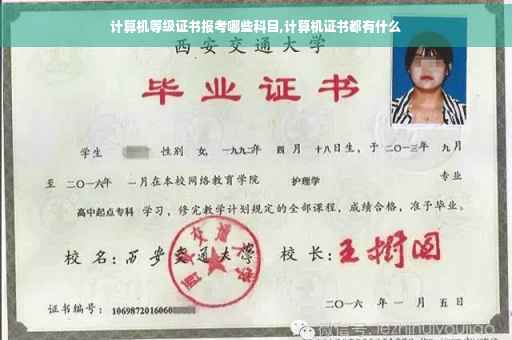 计算机等级证书报考哪些科目,计算机证书都有什么
西安交通大学
毕业证书
学生 性别 女,一九九二年 四 月 十八日生，于 二〇一三年 九月
至 二〇一六年 一月在本校网络教育学院 护理学 专业
高中起点专科 学习，修完教学计划规定的全部课程，成绩合格，准予毕业。
校 名：西安交通大学 校 长：王树国
西安交通大学
证书编号： 1069872016060
二〇一六 年 一 月 五 日
微信号: jezhihuiyoujiao